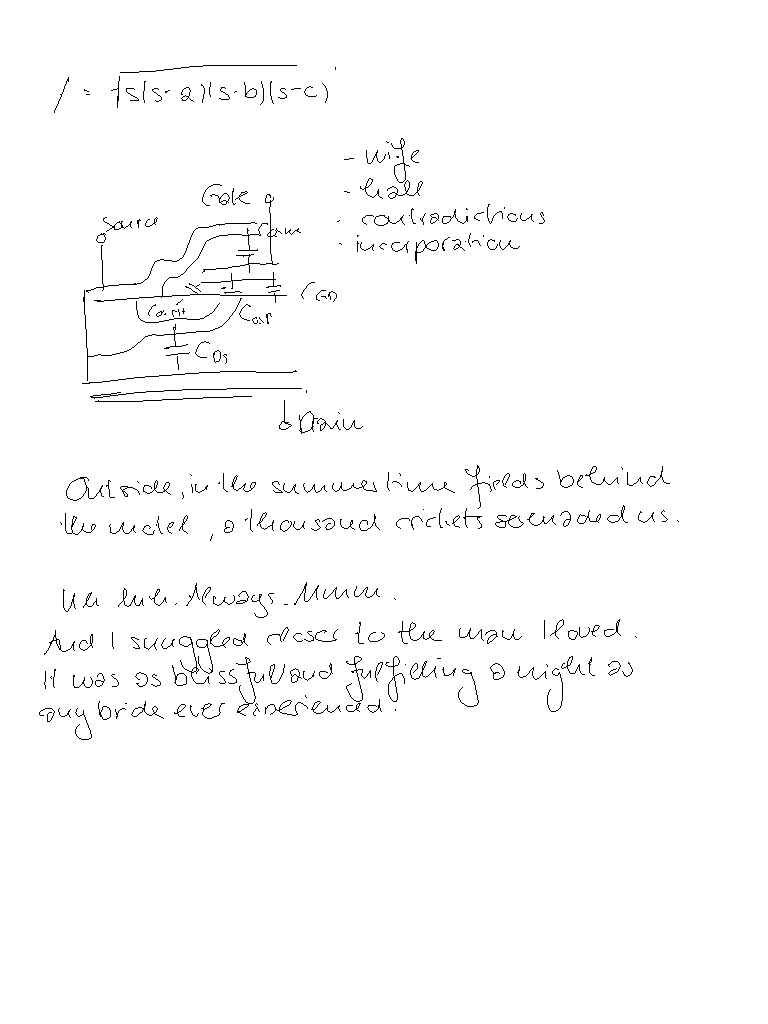 / = √s(s-a)(s-b)(s-c)
- wife
- hall
- contradictions
- incorporation
Gate
Source
CGD
CDS
Drain
Outside, in the summertime fields behind
the motel, a thousand crickets serenaded us.
Uh huh. Always. Mmmm.
And I snuggled closer to the man I loved.
It was as blissful and fulfilling a night as
any bride ever experienced.